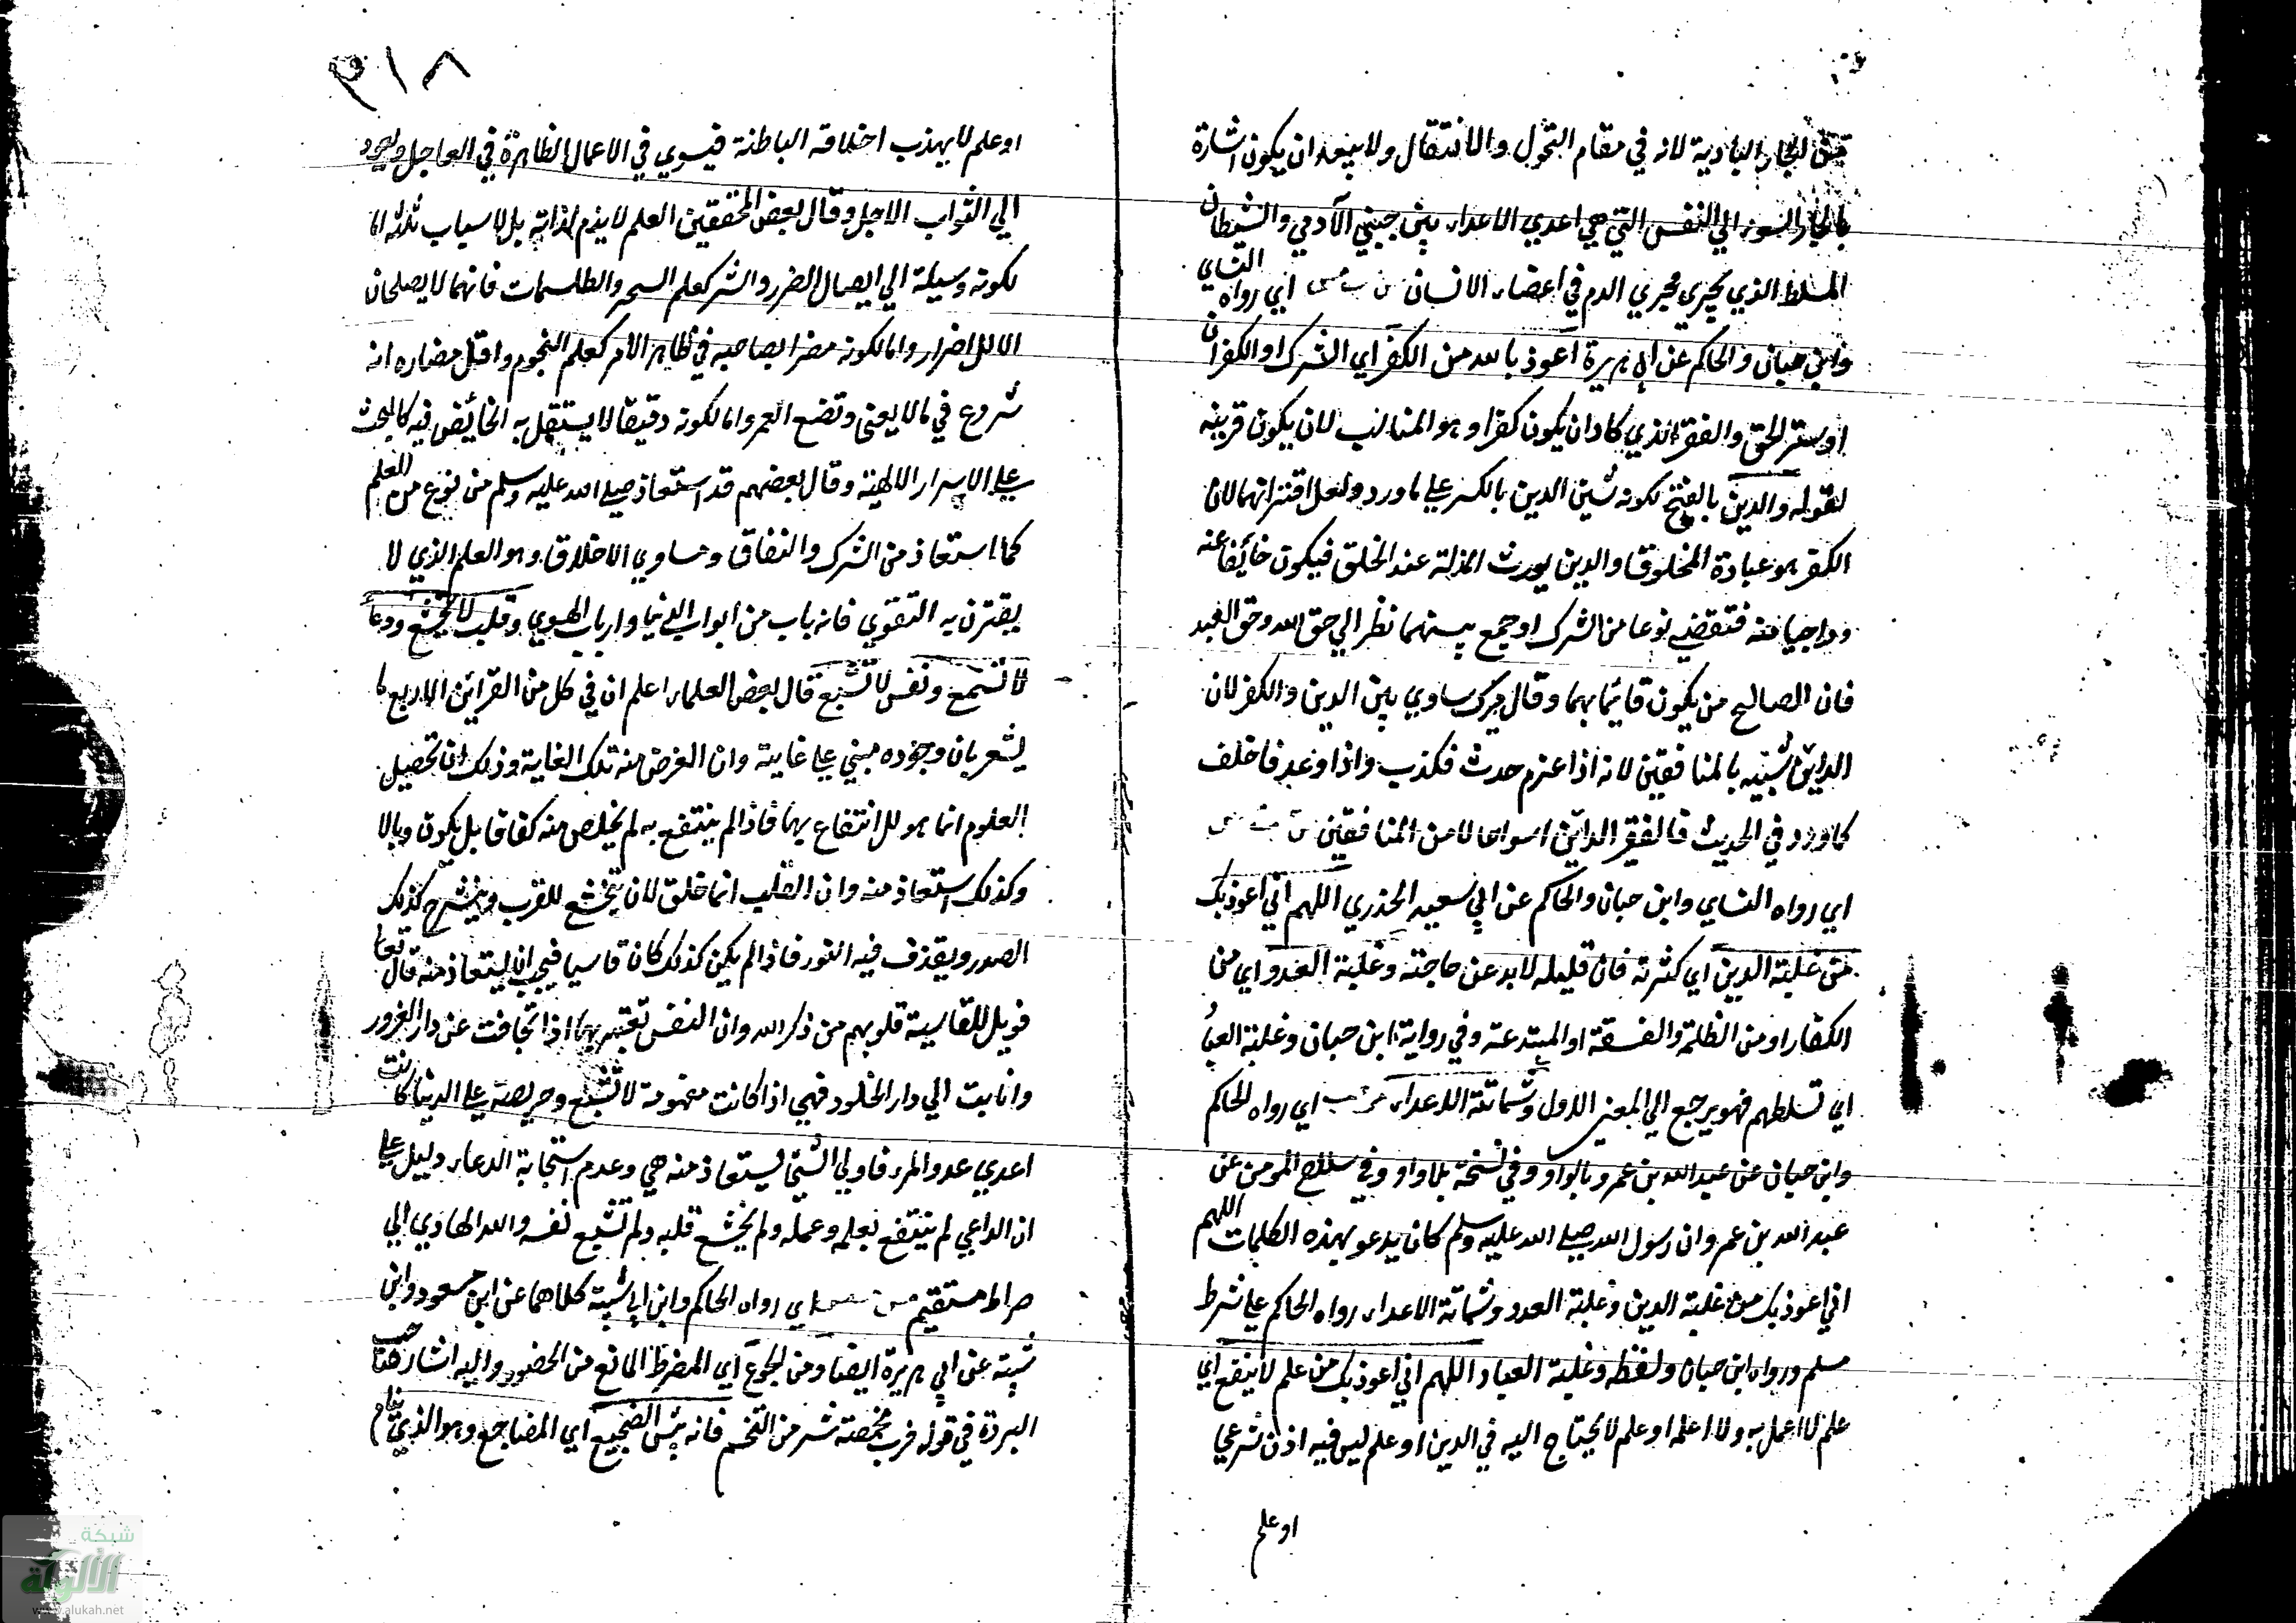 من الجار البادية لانه في مقام التحول والانتقال ولا يبعد ان يكون اشارة
بالجار السوء الي النفس التي هي اعدي الاعداء بين جنبي الآدمي والشيطان
المسلط الذي يجري مجري الدم في اعضاء الانسان س حب مس اي رواه النساي
وابن حبان والحاكم عن ابي هريرة اعوذ بالله من الكفر اي الشرك او الكفران
او ستر الحق والفقر الذي كاد ان يكون كفرا وهو المناسب لان يكون قرينه
لقوله والدين بالفتح لكونه شين الدين بالكسر علي ما ورد ولعل اقترانهما لان
الكفر هو عبادة المخلوق والدين يورث المذلة عند الخلق فيكون خائفا عنه
وراجيا منه فتقضي نوعا من الشرك او جمع بينهما نظرا الي حق الله وحق العبد
فان الصالح من يكون قائما بهما وقال ميرك ساوي بين الدين والكفر لان
الدائن شبيه بالمنافقين لانه اذا عزم حدث فكذب واذا وعد فاخلف
كما ورد في الحديث فالفقير الدائن اسوا حالا من المنافقين س حب مس
اي رواه النساي وابن حبان والحاكم عن ابي سعيد الخذري اللهم اني اعوذ بك
من غلبة الدين اي كثرته فان قليله لابد عن حاجته وغلبة العدو اي من
الكفار او من الظلمة والفسقة او المبتدعة وفي رواية ابن حبان وغلبة العباد
اي تسلطهم فهو يرجع الي المعني الاول وشماتة الاعداء مس حب اي رواه الحاكم
وابن حبان عن عبد الله بن عمرو بالواو وفي نسخة بلا واو وفي سلاح المومن عن
عبد الله بن عمرو ان رسول الله صلي الله عليه وسلم كان يدعو بهذه الكلمات اللهم
اني اعوذ بك من غلبة الدين وغلبة العدو وشماتة الاعداء رواه الحاكم علي شرط
مسلم ورواه ابن حبان ولفظه وغلبة العباد اللهم اني اعوذ بك من علم لا ينفع اي
علم لا اعمل به ولا اعلمه او علم لا يحتاج اليه في الدين او علم ليس فيه اذن شرعي
او علم
٣١٨
او علم لا يهذب اخلاقه الباطنة فيسري في الاعمال الظاهرة في العاجل ويعود
الي الثواب الاجل وقال بعض المحققين العلم لا يذم لذاته بل لاسباب ثلثة اما
لكونه وسيلة الي ايصال الضرر والشر كعلم السحر والطلسمات فانهما لا يصلحان
الا للاضرار واما لكونه مضرا بصاحبه في ظاهر الامر كعلم النجوم واقل مضاره انه
شروع في ما لا يعني وتضع العمر واما لكونه دقيقا لا يستقل به الخائض فيه كالبحث
علي الاسرار الالهية وقال بعضهم قد استعاذ صلي الله عليه وسلم من نوع من العلم
كما استعاذ من الشرك والنفاق ومساوي الاخلاق وهو العلم الذي لا
يقترن به التقوي فانه باب من ابواب الدنيا وارباب الهوي وقلب لا يخشع ودعاء
لا تسمع ونفس لا تشبع قال بعض العلماء اعلم ان في كل من القرائن الاربع ما
يشعر بان وجوده مبني علي غايته وان الغرض منه تلك الغاية وذلك ان تحصيل
العلوم انما هو للانتفاع بها فاذا لم ينتفع به لم يخلص منه كفافا بل يكون وبالا
وكذلك استعاذ منه وان القلب انما خلق لان يتخشع للقرب وينشرح كذلك
الصدر ويقذف فيه النور فاذا لم يكن كذلك كان قاسيا فيجب ان يستعاذ منه قال تعالي
فويل للقاسية قلوبهم من ذكر الله وان النفس تعتبر بها اذا تجافت عن دار الغرور
وانابت الي دار الخلود فهي اذا كانت منهومة لا تشبع وحريصة علي الدنيا كانت
اعدي عدو المرء فاولي الشئ يستعاذ منه هي وعدم استجابة الدعاء دليل علي
ان الداعي لم ينتفع بعلمه وعمله ولم يخشع قلبه ولم تشبع نفسه والله الهادي الي
صراط مستقيم مس مص اي رواه الحاكم وابن ابي شيبة كلاهما عن ابن مسعود وابن
شيبة عن ابي هريرة ايضا ومن الجوع اي المفرط المانع من الحضور واليه اشار صاحب
البردة في قوله فرب مخمصة شر من التخم فانه بئس الضجيع اي المضاجع وهو الذي ينام
شبكة
الألوكة
www.alukah.net